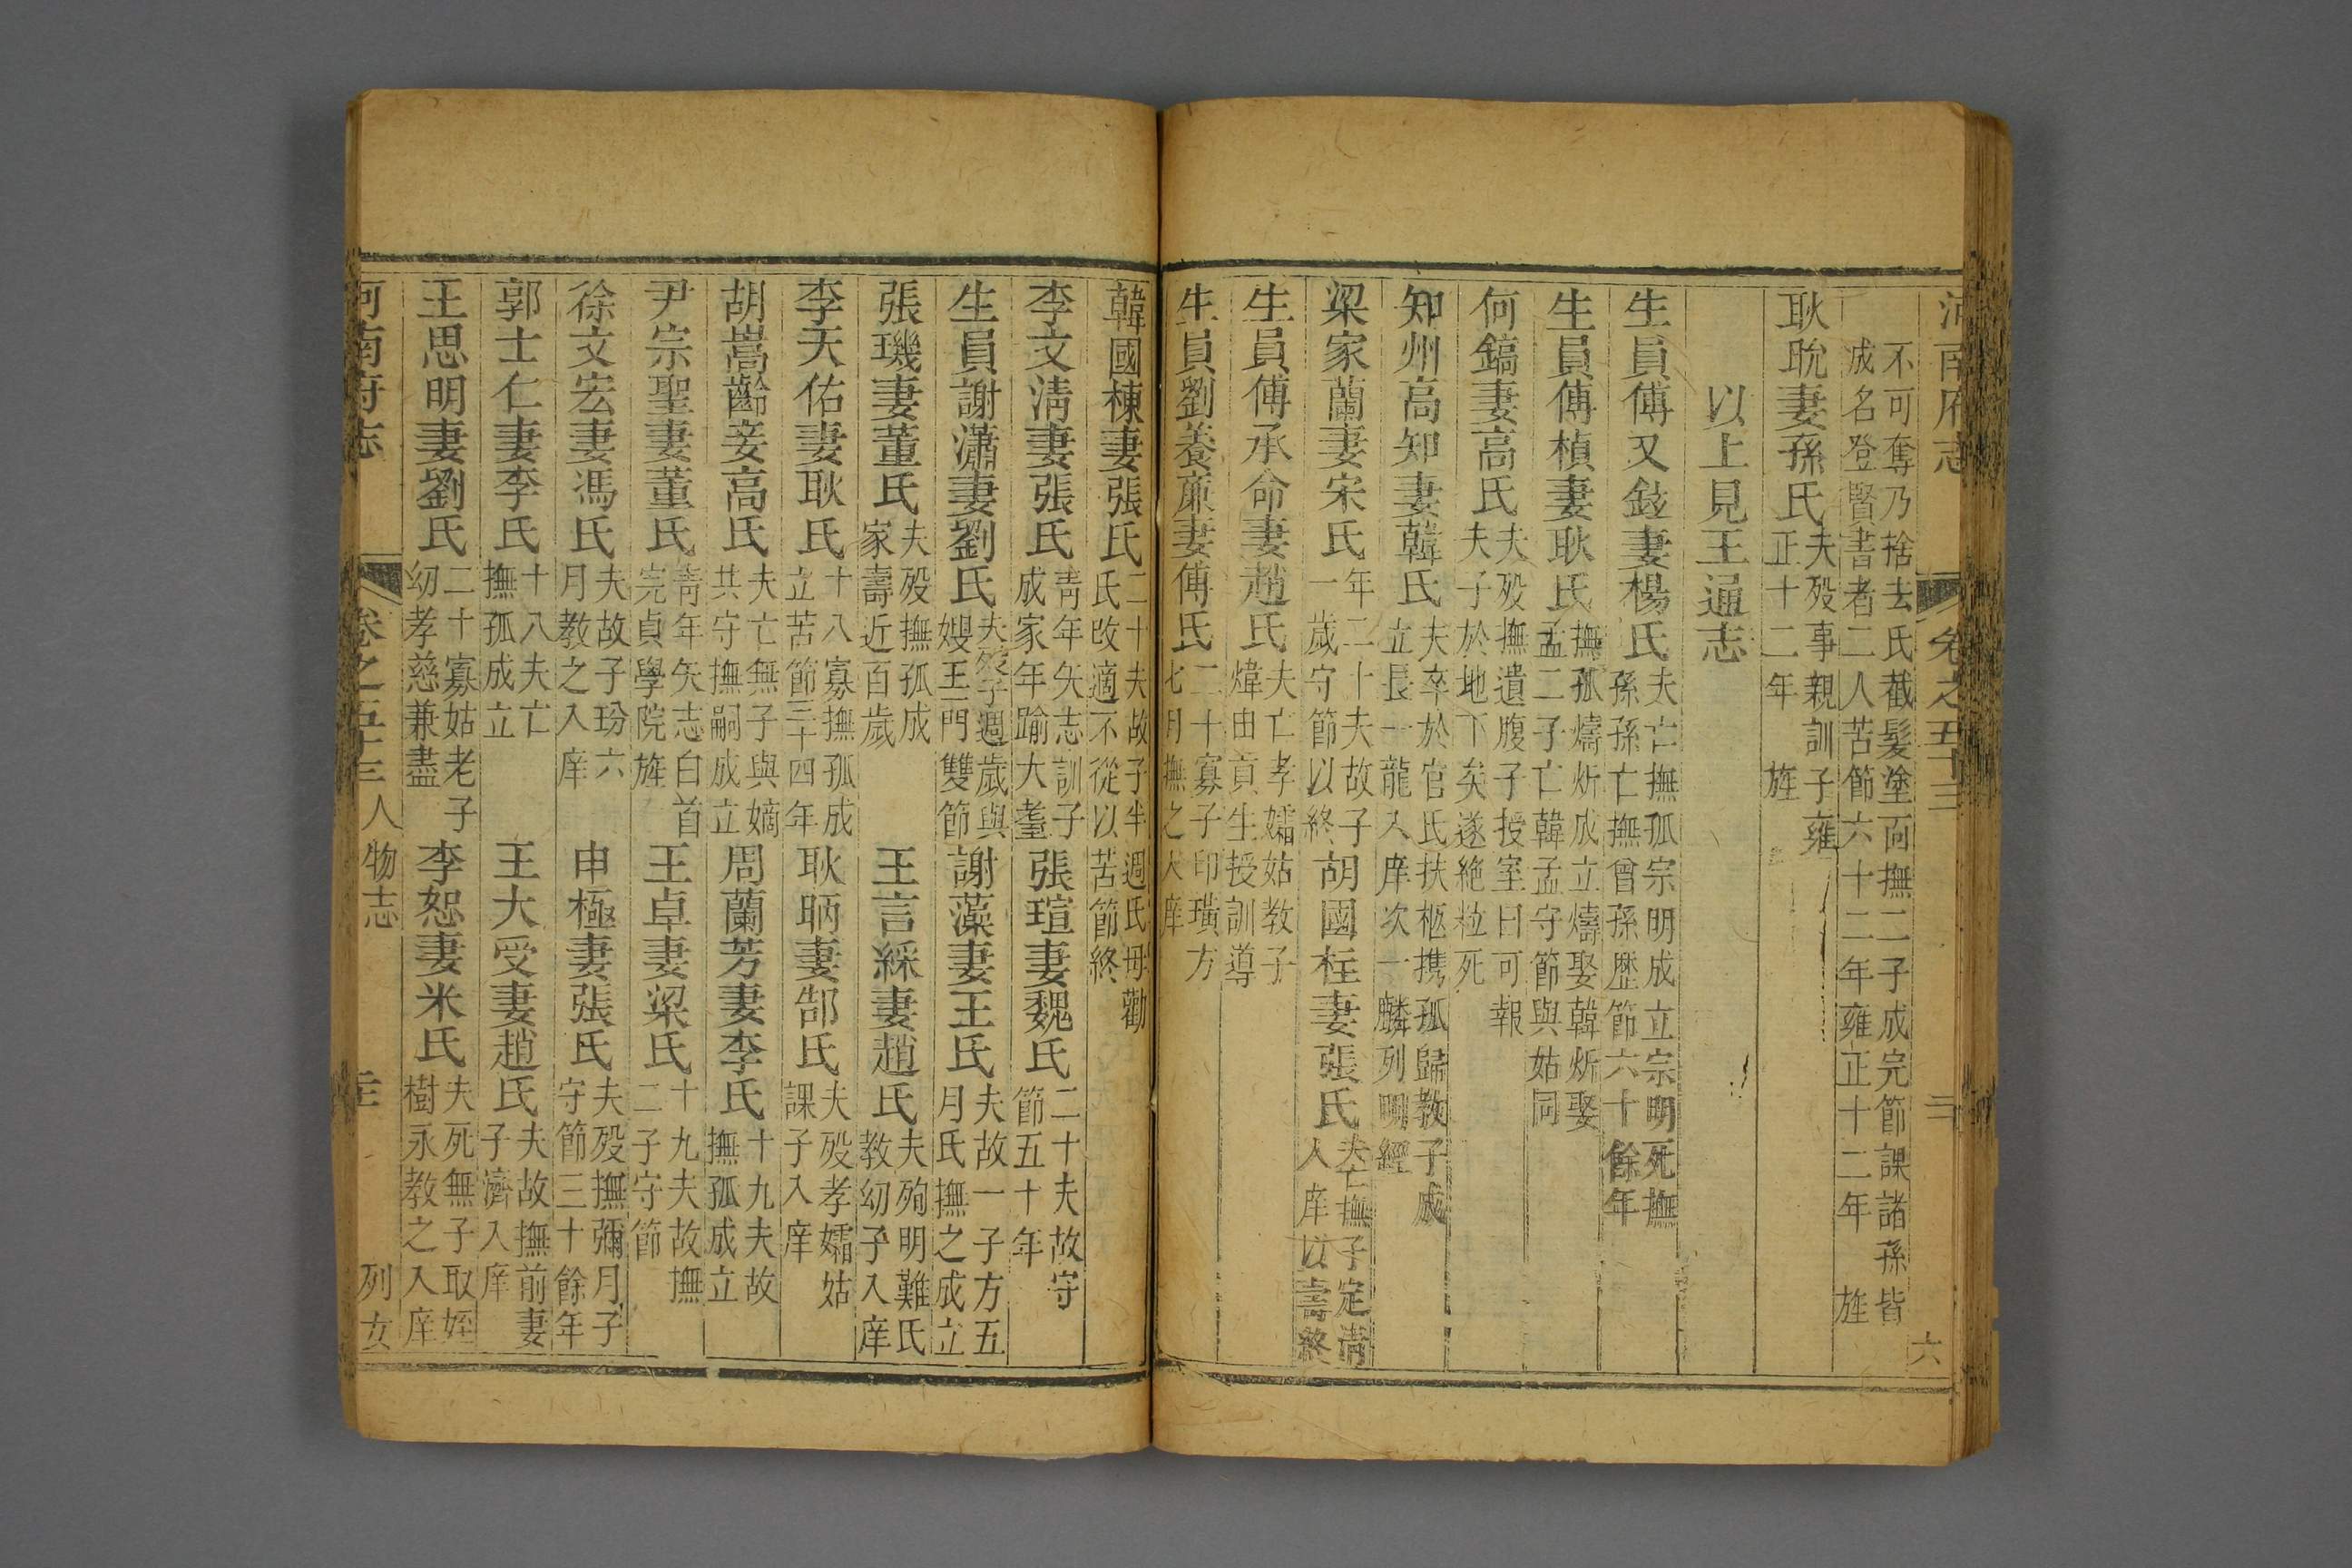 河南府志 卷之五十三 六
不可奪乃捨去氏截髮塗面撫二子成完節課諸孫皆
成名登賢書者二人苦節六十二年雍正十二年 旌
耿聣妻孫氏夫殁事親訓子雍
正十二年 旌
以上見王通志
生員傅又鉉妻楊氏夫亡撫孤宗明成立宗明死撫
孫孫亡撫曾孫歷節六十餘年
生員傅楨妻耿氏撫孤燽炘成立燽娶韓炘娶
孟二子亡韓孟守節與姑同
何鎬妻高氏夫殁撫遺腹子授室曰可報
夫子於地下矣遂絶粒死
知州高知妻韓氏夫卒於官氏扶柩携孤歸教子成
立長一龍入庠次一麟列明經
梁家蘭妻宋氏年二十夫故子
一歲守節以終
胡國柱妻張氏夫亡撫子定淸
入庠以壽終
生員傅承命妻趙氏夫亡孝孀姑教子
煒由貢生授訓導
生員劉養廉妻傅氏二十寡子印璜方
七月撫之入庠
韓國棟妻張氏二十夫故子半週氏母勸
氏改適不從以苦節終
李文淸妻張氏靑年矢志訓子
成家年踰大耋
張瑄妻魏氏二十夫故守
節五十年
生員謝瀟妻劉氏夫終子週歲與
嫂王門雙節
謝藻妻王氏夫故一子方五
月氏撫之成立
張璣妻董氏夫殁撫孤成
家壽近百歲
王言綵妻趙氏夫殉明難氏
教幼子入庠
李天佑妻耿氏十八寡撫孤成
立苦節三十四年
耿昞妻郜氏夫殁孝孀姑
課子入庠
胡嵩齡妾高氏夫亡無子與嫡
共守撫嗣成立
周蘭芳妻李氏十九夫故
撫孤成立
尹宗聖妻董氏靑年矢志白首
完貞學院旌
王卓妻梁氏十九夫故撫
二子守節
徐文宏妻馮氏夫故子玢六
月教之入庠
申極妻張氏夫殁撫彌月子
守節三十餘年
郭士仁妻李氏十八夫亡
撫孤成立
王大受妻趙氏夫故撫前妻
子濟入庠
王思明妻劉氏二十寡姑老子
幼孝慈兼盡
李恕妻米氏夫死無子取姪
樹永教之入庠
河南府志 卷之五十三 人物志 列女